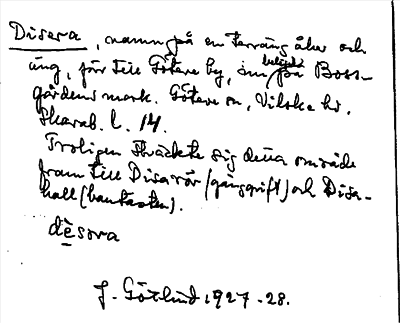 Disera, namn på en terräng åker och
äng, förr till Götene by, inu belägd på Boss-
gårdens mark. Götene sn, Vilske hd.
Skarab. l. 14.
Troligen sträckte sig detta område
fram till Disarör (gånggrift) och Disa-
hall (hautasten).
dèsora
J. Götlind 1927-28.